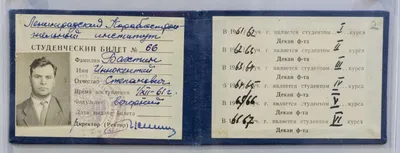 Ленинградский Кораблестрои-
тельный институт
СТУДЕНЧЕСКИЙ БИЛЕТ № 66
Фамилия Вахтин
Имя Иннокентий
Отчество Степанович
Время поступления VIII-61 г.
Факультет вечерний
Дата выдачи билета
Директор (Ректор)
В 1961/62 уч. г. является студентом I курса
Декан ф-та
В 1962/63 уч. г. является студентом II курса
Декан ф-та
В 1963/64 уч. г. является студентом III курса
Декан ф-та
В 1964/65 уч. г. является студентом IV курса
Декан ф-та
В 1965/66 уч. г. является студентом V курса
Декан ф-та
В 1966/67 уч. г. является студентом VI курса
Декан ф-та